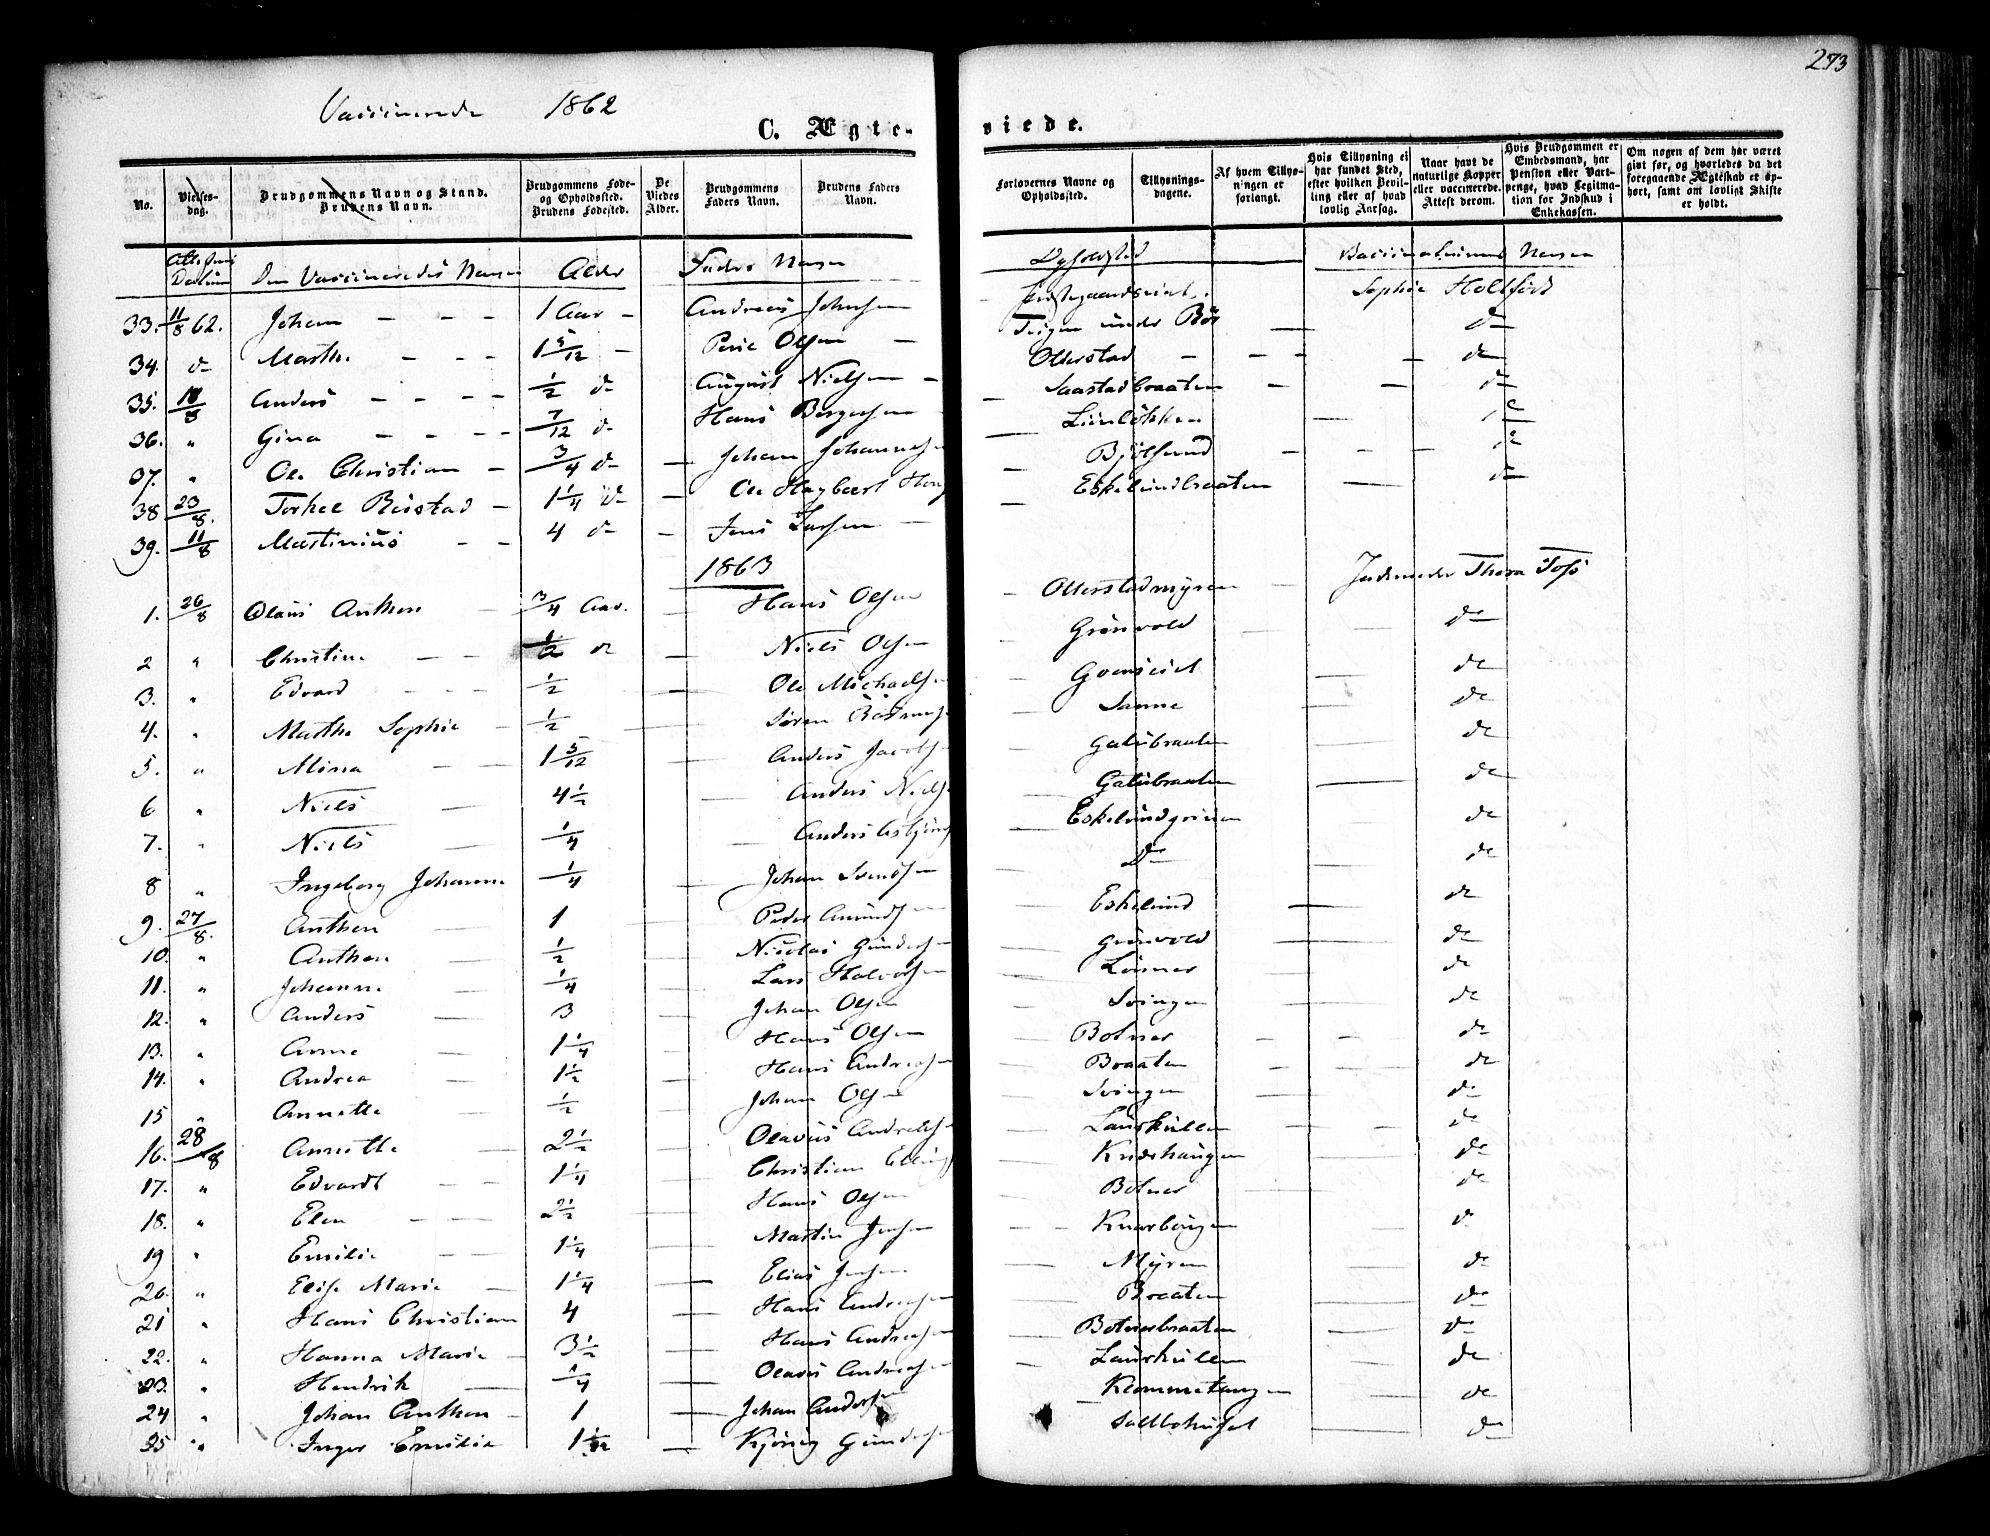 273
Vaccinerede 1862
C. Ægte-viede.
No. Vielsesdag. Brudgommens Navn og Stand. Brudens Navn. Brudgommens Føde- og Opholdssted. Brudens Fødested. De Viedes Alder. Brudgommens Faders Navn. Brudens Faders Navn. Forlovernes Navne og Opholdssted. Tillysningsdagene. Af hvem Tillysningen er forlangt. Hvis Tillysning ei har fundet Sted, efter hvilken Bevilling eller af hvad lovlig Aarsag. Naar havt de naturlige Kopper eller vaccinerede. Attest derom. Hvis Brudgommen er Embedsmand, har Pension eller Vartpenge, hvad Legitimation for Indskud i Enkekassen. Om nogen af dem har været gift før, og hvorledes da det foregaaende Ægteskab er ophørt, samt om lovligt Skifte er holdt.
Attestens Datum Den Vaccineredes Navn Alder Faders Navn Opholdssted Vaccinateurens Navn
33. 11/8 62. Johan 1 Aar Andreas Johnsen Sophie Holtfodt
34. d Marthe 1 5/12 Peric Olsen Teigen under Böe d
35. 18/8 Anders 1/2 d August Nielsen Otterstad d
36. " Gina 7/12 d Hans Borgersen Saastadbraaten d
37. " Ole Christian 3/4 d Johan Johannesen Lunløkken d
38 23/8. Torkel Reistad 1 1/4 d Ole Bjölsund d
39. 11/8 Martinius 4 d Jens Larsen Eskelundbraaten d
1863
1. 26/8 Olaus Anthon 3/4 Aar. Hans Olsen Otterstadmyren Jordemoder Thora Foss
2 " Christine 1/2 d Niels Olsen Grönvold d
3. " Edvard 1/2 Ole Michaelsen d
4. " Marthe Sophie 1/2 Sören Sanne d
5. " Mina 1 5/12 Anders Jacobsen Galubraaten d
6 " Niels 4 1/2 Anders Nielsen Galubraaten d
7. " Niels 1/4 Anders Eskelundgrinen d
8 " Ingeborg Johanne 1/4 Johan Svendsen D d
9. 27/8. Anthon 1 Peder Amundsen Eskelund d
10. " Anthon 1/2 Nicolai Gundersen Grönvold d
11. " Johanne 1/4 Lars Halvorsen d
12. " Anders 3 Johan Olsen Svingen d
13. " Anne 1 1/4 Hans Olsen Botner d
14. " Andrea 1 1/2 Hans Andreasen Braaten d
15 " Annette 1/2 Johan Olsen Svingen d
16. 28/8 Annette 2 1/2 Olavus Andreasen Laurkullen d
17. " Edvardt 1 1/4 Christian Knudshaugen d
18. " Elen 2 1/2 Hans Olsen Botner d
19 " Emilie 1 1/4 Martin Jensen d
20. " Elise Marie 1 1/4 Elias Jensen Myren d
21 " Hans Christian 4 Hans Andreasen Braaten d
22. " Hanna Marie 3 1/2 Hans Andreasen Botnerbraaten d
23. " Hendrik 1/4 Olavus Andreasen Laurkullen d
24 " Johan Anthon 1 Johan Andersen d
25 " Inger Emilie 1 1/12 Gundersen d